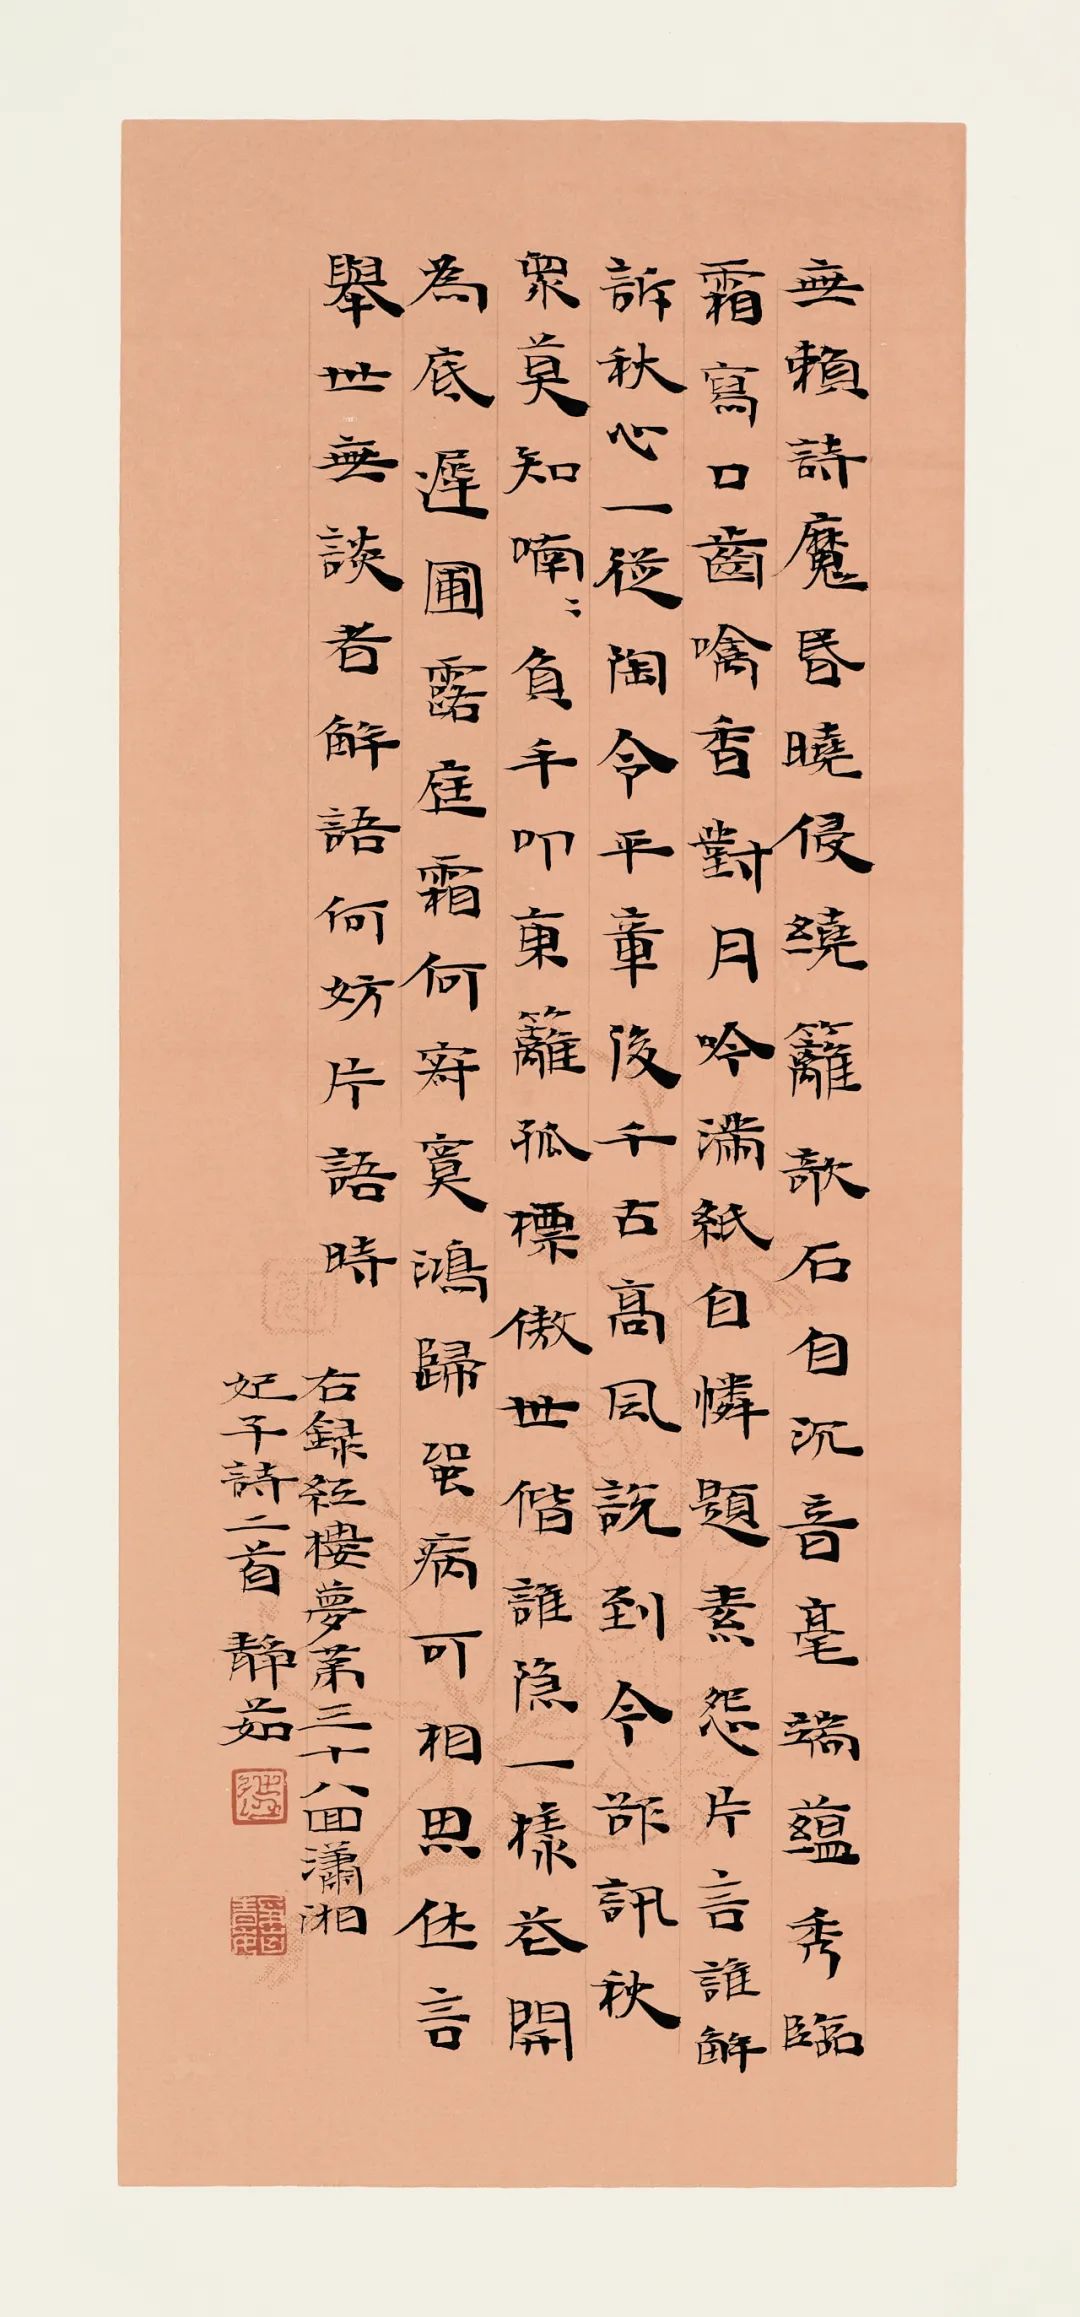 無賴詩魔昏曉侵繞籬欹石自沉音毫端蘊秀臨
霜寫口齒噙香對月吟滿紙自憐題素怨片言誰解
訴秋心一從陶令平章後千古高風說到今欲訊秋
眾莫知喃〻負手叩東籬孤標傲世偕誰隱一樣花開
為底遲圃露庭霜何寂寞鴻歸蛩病可相思休言
舉世無談者解語何妨片語時
右錄紅樓夢第三十八回瀟湘
妃子詩二首 靜茹